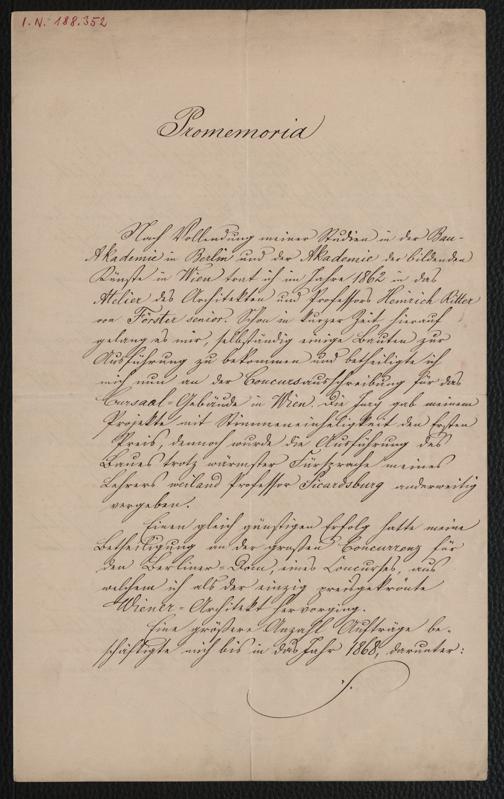 I.N. 188.352
Promemoria
Nach Vollendung meiner Studien in der Bau-
Akademie in Berlin und der Akademie der bildenden
Künste in Wien trat ich im Jahre 1862 in das
Atelier des Architekten und Professors Heinrich Ritter
von Förster senior. Schon in kurzer Zeit hierauf
gelang es mir, selbständig einige Bauten zur
Ausführung zu bekommen und betheiligte ich
mich nun an der Concursausschreibung für das
Cursaal-Gebäude in Wien. Die Jury gab meinem
Projekte mit Stimmeneinhelligkeit den ersten
Preis, dennoch wurde die Ausführung des
Baues trotz wärmster Fürsprache meines
Lehrers weiland Professor Sicardsburg anderweitig
vergeben.
Einen gleich günstigen Erfolg hatte meine
Betheiligung an der großen Concurrenz für
den Berliner-Dom, eines Concurses, aus
welchem ich als der einzig preisgekrönte
Wiener-Architekt hervorging.
Eine größere Anzahl Aufträge be-
schäftigte mich bis in das Jahr 1868, darunter: